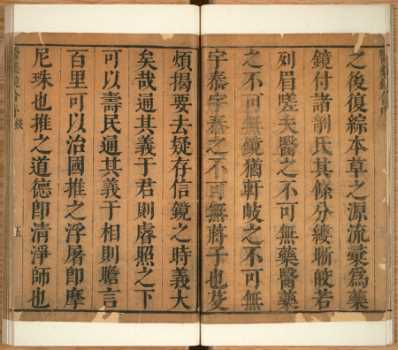 之後復綜本草之源流彙爲藥
鏡付諸剞氏其條分縷晰皎若
列眉嗟夫醫之不可無藥醫藥
之不可無鏡猶軒岐之不可無
宇泰宇泰之不可無蔣子也芟
煩揭要去疑存信鏡之時義大
矣哉通其義于君則睿照之下
可以壽民通其義于相則膽言
百里可以治國推之浮屠卽摩
尼珠也推之道德卽清淨師也
五